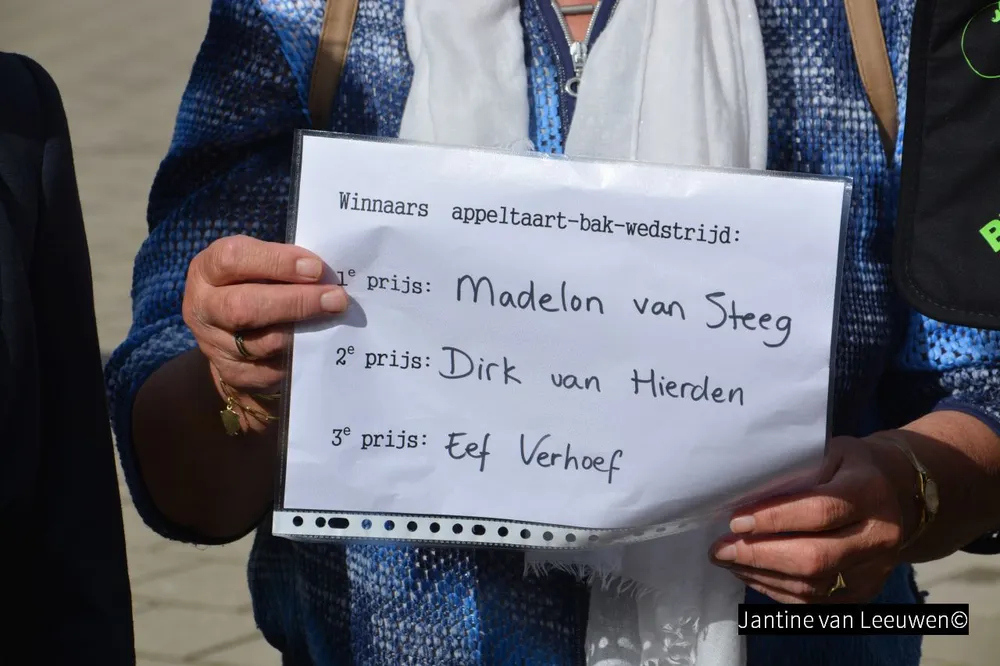 Winnaars appeltaart-bak-wedstrijd:
1e prijs: Madelon van Steeg
2e prijs: Dirk van Hierden
3e prijs: Eef Verhoef
Jantine van Leeuwen©